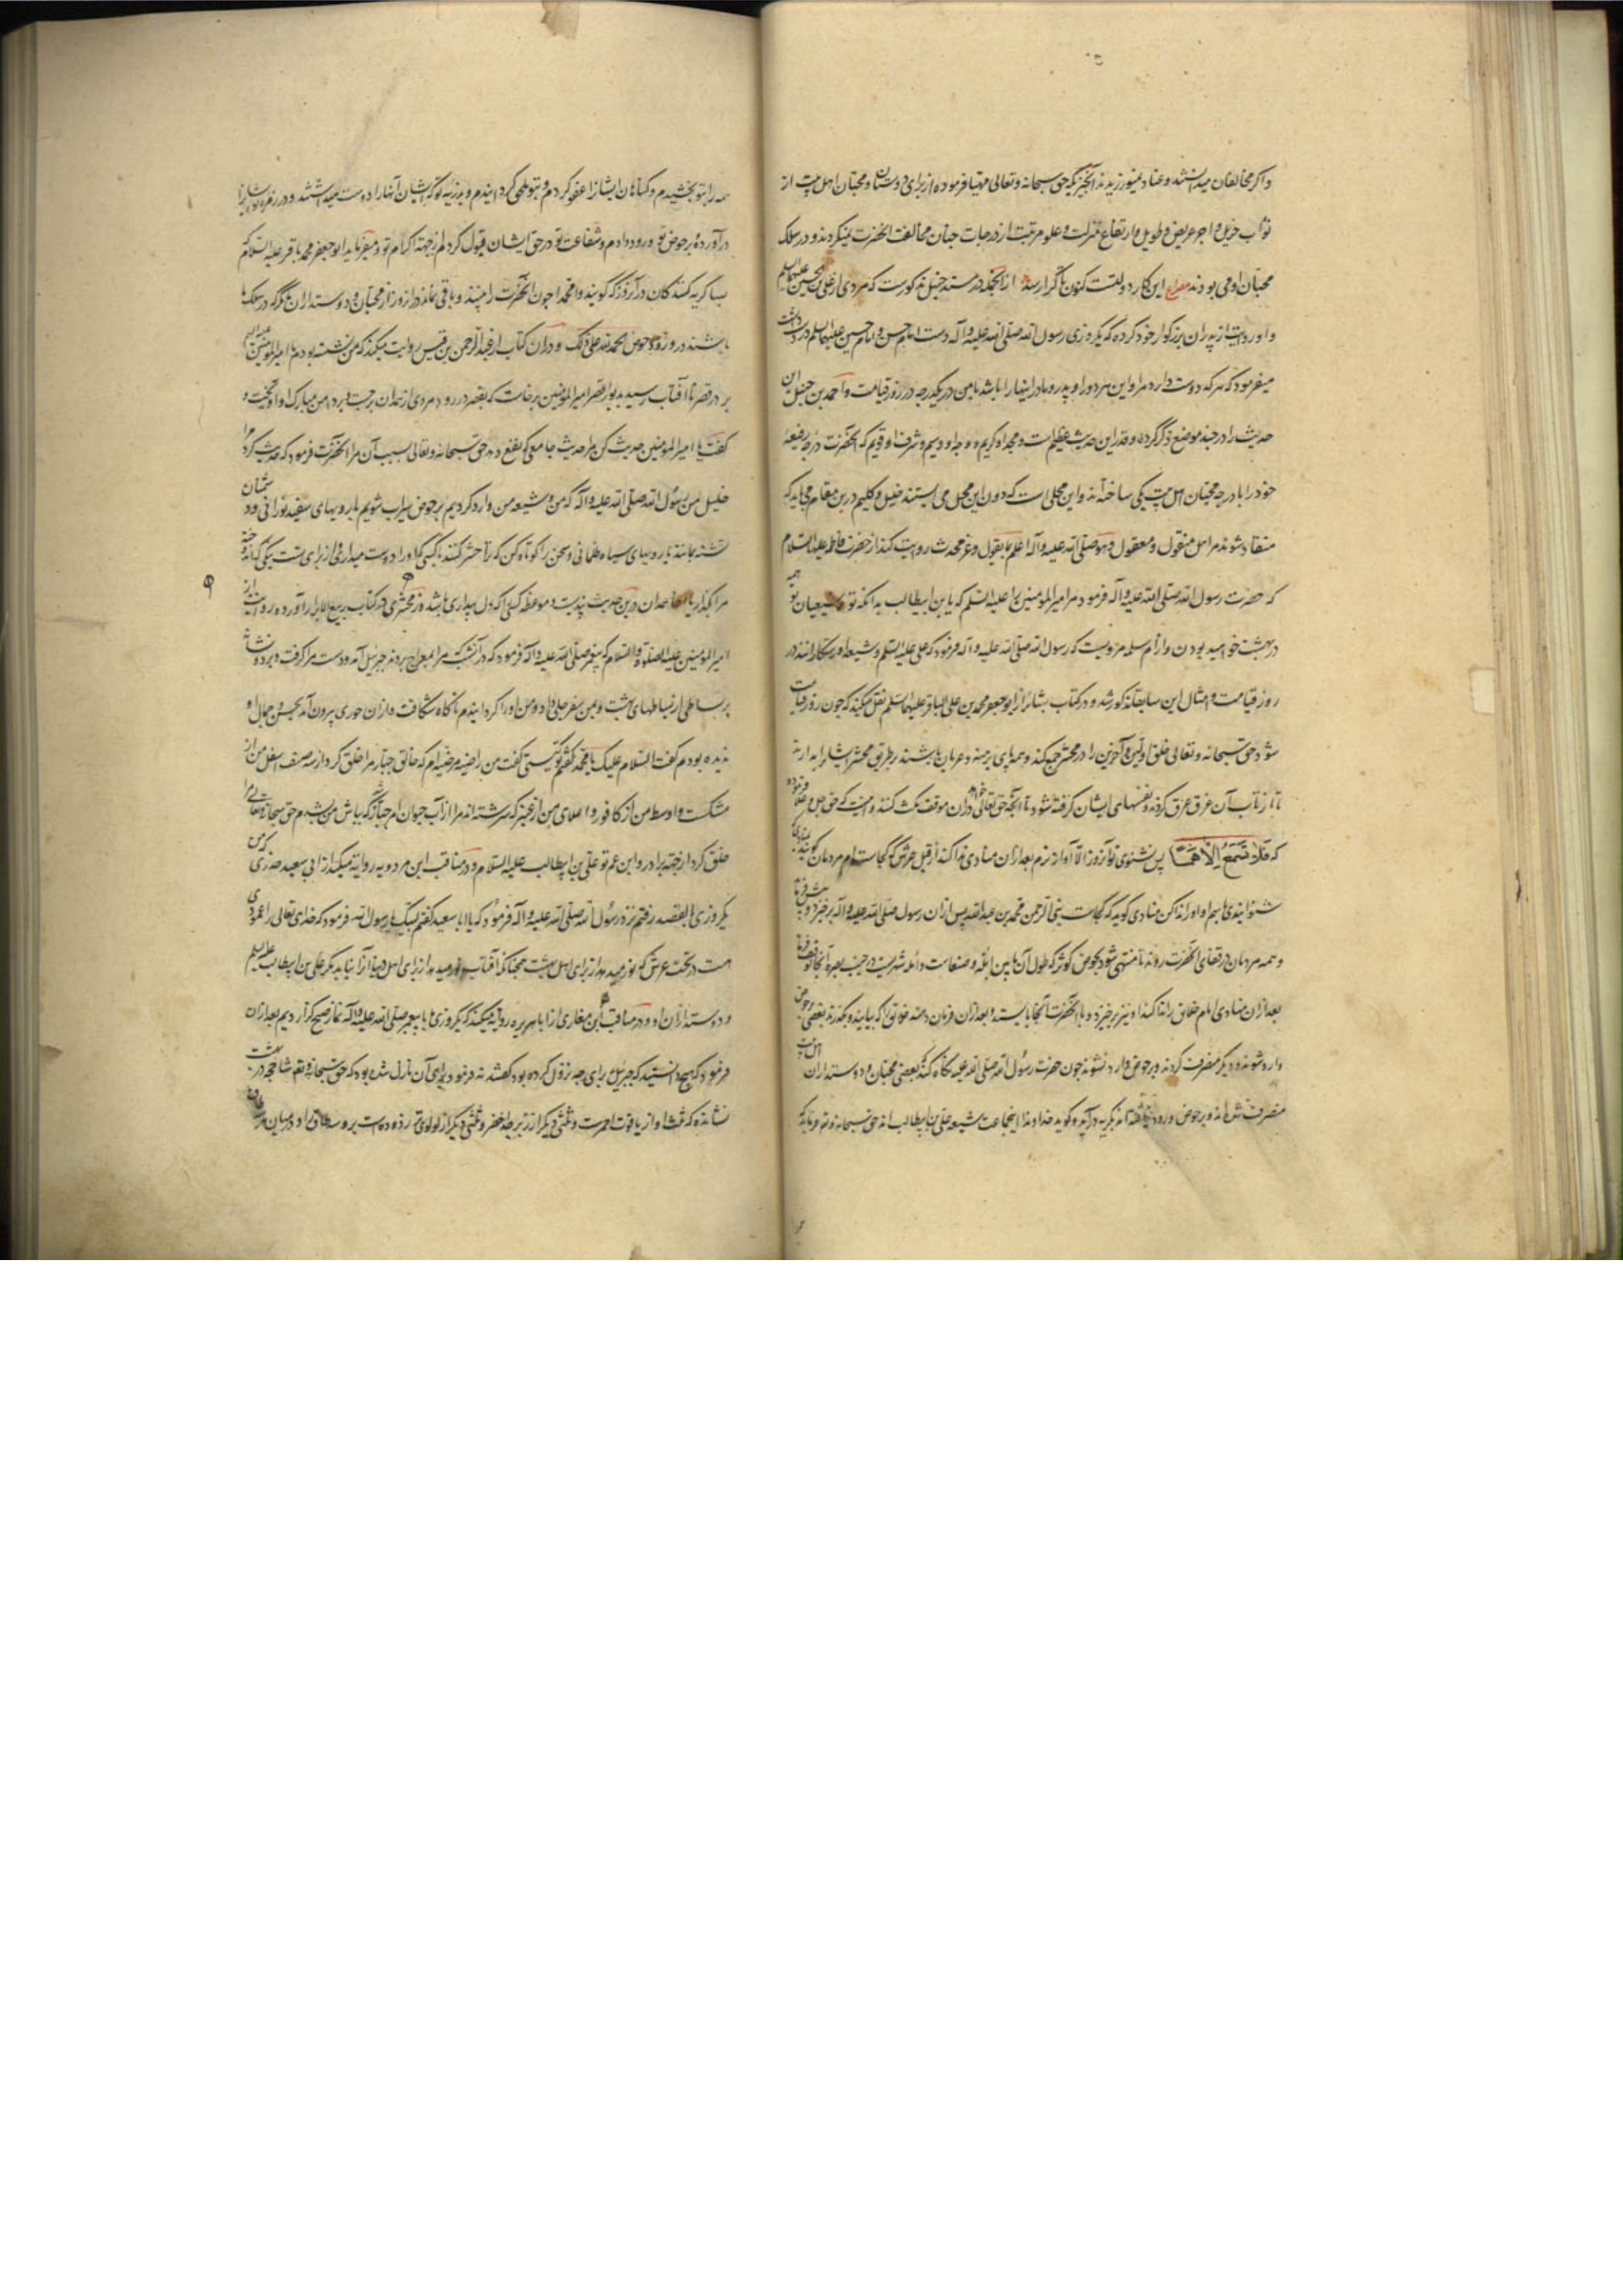 واکر مخالفان میدانستند و عناد نمیورزیدند آنچیزیکه حق سبحانه وتعالی مهیا فرموده از برای دوستان و محبان اهل بیت از
ثواب جزیل و اجر عریض و طویل و ارتفاع منزلت و علو مرتبت از درجات جنان مخالفت آنحضرت نمیکردند و در سلک
محبان او می بودند مصراع این کار دولتست کنون تا کرا رسد از آنجمله در مسند حنبل مذکورست که مردی از علی بن الحسین علیهما السلم
و او روایت از پدران بزرکوار خود کرده که یکروزی رسول الله صلی الله علیه وآله دست امام حسن و امام حسین علیهما السلم در دست داشت
میفرمود که هر که دوست دارد مرا و این هر دو را و پدر و مادر اینها را باشد با من در یکدرجه در روز قیامت و احمد بن حنبل این
حدیث را در چند موضع ذکر کرده و قدر این حدیث عظیم است و مجد او کریم و وجه او وسیم و شرف او قدیم که آنحضرت درجه رفیعه
خود را با درجه محبان اهل بیت یکی ساخته‌اند و این محلی است که دون این محل می ایستند خلیل و کلیم درین مقام می‌باید که
منقاد شوند مر اهل منقول و معقول و هو صلی الله علیه وآله اعلم بما یقول و عز محدث روایت کند از حضرت فاطمه علیها السلام
که حضرت رسول الله صلی الله علیه وآله فرمود مر امیر المومنین را علیه السلم که یا بن ابیطالب بدانکه تو و شیعیان تو همه
در بهشت خواهید بودن و از ام سلمه مرویست که رسول الله صلی الله علیه وآله فرمود که علی علیه السلم و شیعه او رستکارانند در
روز قیامت و امثال این سابقا مذکور شد و در کتاب بشائر از ابو جعفر محمد بن علی الباقر علیهما السلم نقل میکند که چون روز قیامت
شود حق سبحانه وتعالی خلق اولین و آخرین را در محشر جمع کند و همه پای برهنه و عریان باشند بر طریق محشر ایشانرا بدارند
تا از تاب آن عرق عرق کردند و نفسهای ایشان کرفته شود تا آنچه حق تعالی خواهد در آن موقف مکث کنند و اینست که حق جل و علا فرموده
که فَلا تَسْمَعُ اِلّا هَمْساً پس نشنوی تو آنروز الا آواز نرم بعد ازان منادی ندا کند از قبل عرش که کجاست مردمان کویند
شنوانیدی ما را باسم او او را ندا کن منادی کوید که کجاست نبی الرحمن محمد بن عبد الله پس ازان رسول صلی الله علیه وآله برخیزد و
و همه مردمان در قفای آنحضرت روند تا منتهی شود بحوض کوثر که طول آن ما بین ابله و صنعاست و ابله شهریست در جنب بصره آنجا توقف فرماید
بعد ازان منادی امام خلائق را ندا کند او نیز برخیزد و با آنحضرت آنجا بایستد و بعد ازان فرمان دهند خلائق را که بیایند و بکذرند بعضی بر حوض
وارد شوند و دیکر منصرف کردند و بر حوض وارد نشوند چون حضرت رسول الله صلی الله علیه نکاه کند که بعضی محبان و دوستداران اهل بیت
منصرف شده‌اند و بر حوض ورود نیافته اند بکریه درآید و کوید خداوندا اینجماعت شیعه علی بن ابیطالب اند حق سبحانه و تع فرماید که
همه را بتو بخشیدم و کناهان ایشانرا عفو کردم و بتو ملحق کردانیدم و بذریه تو که ایشان آنها را دوست میداشتند و در زمره تو ایشانرا
درآورده بر حوض تو ورود دادم و شفاعت تو در حق ایشان قبول کردم از جهت اکرام تو و میفرماید ابو جعفر محمد باقر علیه السلام که
بسا کریه کنندکان در آنروز که کویند وا محمدا چون آنحضرت را بینند و باقی نماند در آنروز از محبان و دوستداران ما مکر که در سلک ما
باشند در ورود حوض الحمد لله علی ذلک و دران کتاب از عبد الرحمن بن قیس روایت میکند که من نشسته بودم با امیر المومنین علیه السلم
بر در قصر تا آفتاب رسید بدیوار قصر امیر المومنین برخاست که بقصر در رود مردی از همدان برجست و بر دامن مبارک او آویخت و
کفت یا امیر المومنین حدیث کن مرا حدیث جامعی که نفع دهد حق سبحانه وتعالی بسبب آن مرا آنحضرت فرمود که حدیث کرد مرا
خلیل من رسول الله صلی الله علیه وآله که من و شیعه من وارد کردیم بر حوض سیراب شویم با رویهای سفید نورانی و دشمنان
تشنه بمانند با رویهای سیاه ظلمانی و سخن را کوتاه کن که ترا حشر کنند با کسی که او را دوست میداری و از برای تست
مرا بکذار یا اخا همدان درین حدیث پندیست و موعظه کسی را که دل بیداری باشد و زمخشری در کتاب ربیع الابرار آورده روایت از
امیر المومنین علیه الصلوة والسلام که پیغمبر صلی الله علیه وآله فرمود که در آن شب که مرا بمعراج بردند جبرئیل آمد و دست مرا کرفت و برد و نشاند
بر بساطی از بساطهای بهشت و بمن سفرجلی داد و من او را کردانیدم ناکاه شکافت و ازان حوری بیرون آمد بحسن و جمال او
ندیده بودم کفت السلام علیک یا محمد کفتم تو کیستی کفت من راضیه مرضیه ام که خالق جبار مرا خلق کرد از سه صنف اسفل من از
مشکست و اوسط من از کافور و اعلای من از عنبر که سرشته اند مرا از آب حیوان امر جبار که بباش من شدم حق سبحانه وتعالی مرا
خلق کرد از جهة برادر و ابن عم تو علی بن ابیطالب علیه السلام و در مناقب ابن مردویه روایة میکند از ابی سعید خدری که من
یکروزی بالقصد رفتم نزد رسول الله صلی الله علیه وآله فرمود که یا ابا سعید کفتم لبیک یا رسول الله فرمود که خدای تعالی را عمودی
هست در تحت عرش که نور میدهد از برای اهل بهشت همچنانکه آفتاب نور میدهد از برای اهل دنیا آنرا نیابد مکر علی بن ابیطالب علیه السلم
و دوستداران او و در مناقب ابن مغازلی از ابا هریره روایة میکند که یکروزی با پیغمبر صلی الله علیه وآله نماز صبح کزاردیم بعد ازان
فرمود که هیچ دانستید که جبرئیل برای چه نزول کرده بود کفتند نه فرمود برای آن نازل شده بود که حق سبحانه و تع شاخچه در بهشت
نشانده که ثلث او از یاقوت احمرست و ثلثی دیکر از زبرجد اخضر و ثلثی دیکر از لولوی تر زده است برو طاقی و در میان هر